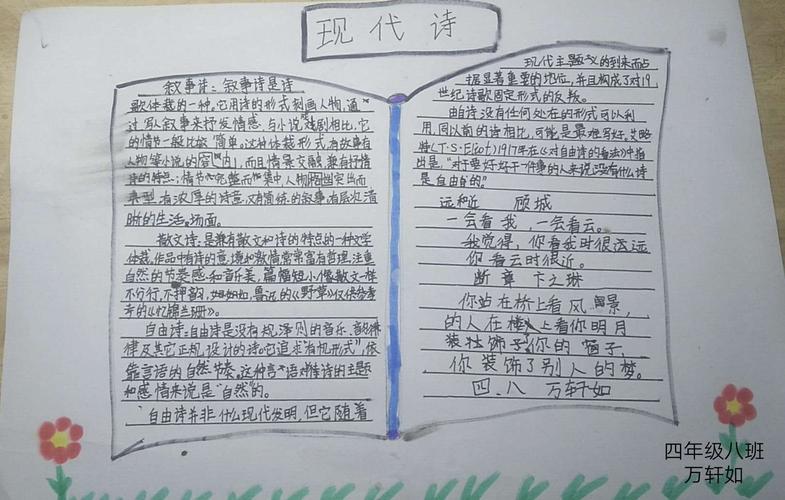 现代诗
叙事诗：叙事诗是诗
歌体裁的一种。它用诗的形式刻画人物，通
过写人叙事来抒发情感，与小说戏剧相比，它
的情节一般比较简单。这种体裁形式，有故事有
人物等小说的内，而且情景交融，兼有抒情
诗的特点；情节完整而集中，人物性格突出而
典型，有浓厚的诗意，又有简练的叙事，有层次清
晰的生活。场面。
散文诗：是兼有散文和诗的特点的一种文学
体裁，作品中有诗的意境和激情常常富有哲理，注重
自然的节奏感和音乐美，篇幅短小，像散文一样
不分行，不押韵，如，鲁迅的《野草》
的《忆锦兰珊》。
自由诗：自由诗是没有规泽则的音乐、音
律及其它正规，设计的诗。它追求"有机形式"，依
靠言语的自然节奏。这种言语对诗的主题
和感情来说是"自然的。
"自由诗并非什么现代发明，但它随着
现代主题义的到来而占
据显著重要的地位，并且构成了对19
世纪诗歌固定形式的反叛。
由诗没有任何处在的形式可以利
用，同以前的诗相比，可能是最难写好，艾略
特(T·S·Eliot)1917年在《对自由诗的看法》中指
出是，"对于要好好干一件事的人来说，没有什么诗
是自由的。"
远和近 顾城
一会看我，一会看云。
我觉得，你看我时很远
你看云时很近。
断章 卞之琳
你站在桥上看风景，
的人在楼上看你明月
装饰子你的窗子，
你装饰了别人的梦。
四、八 万轩如
四年级八班
万轩如